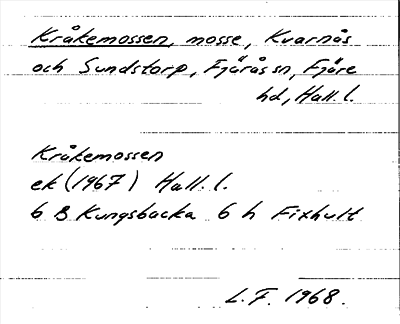 Kråkemossen, mosse, Kvarnås
och Sundstorp, Fjärås sn, Fjäre
hd, Hall. l.
Kråkemossen
ek (1967) Hall. l.
6 B Kungsbacka 6 h Fixhult
L.F. 1968.